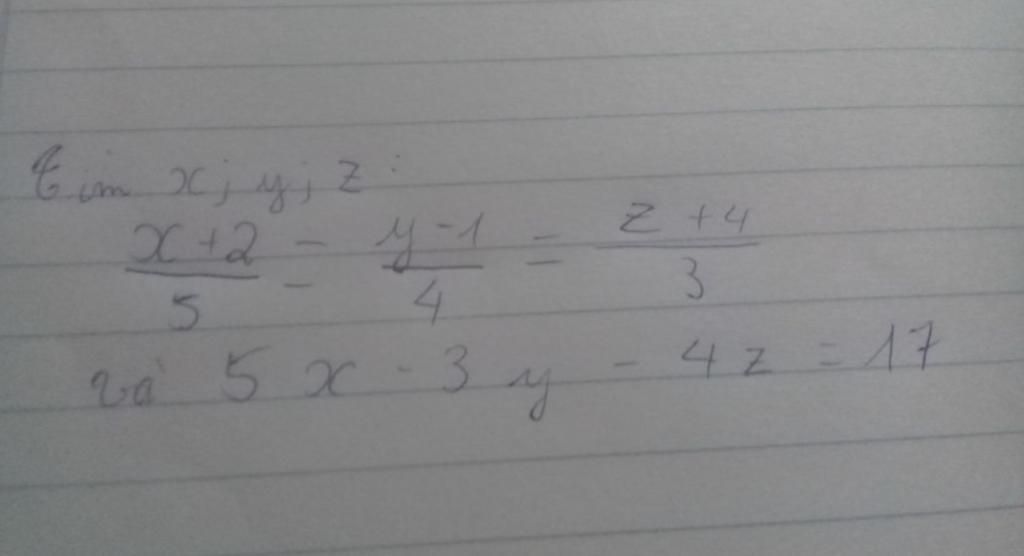 tìm x; y; z:
x+2/5 = y-1/4 = z+4/3
và 5x - 3y - 4z = 17